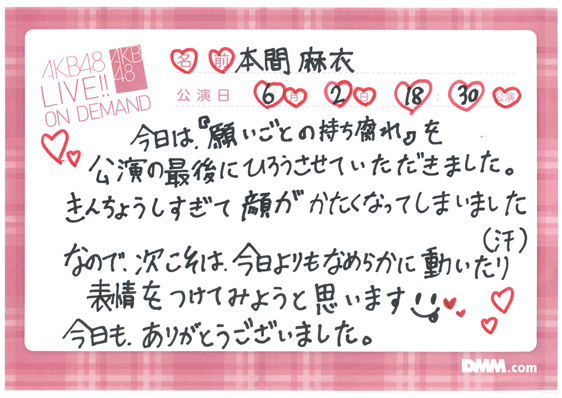 AKB48
LIVE!!
ON DEMAND
AKB
48
名前 本間 麻衣
公演日 6月 2日 18:30公演
今日は、『願いごとの持ち腐れ』を
公演の最後にひろうさせていただきました。
きんちょうしすぎて顔がかたくなってしまいました
(汗)
なので、次こそは、今日よりもなめらかに動いたり
表情をつけてみようと思います
今日も、ありがとうございました。
DMM.com